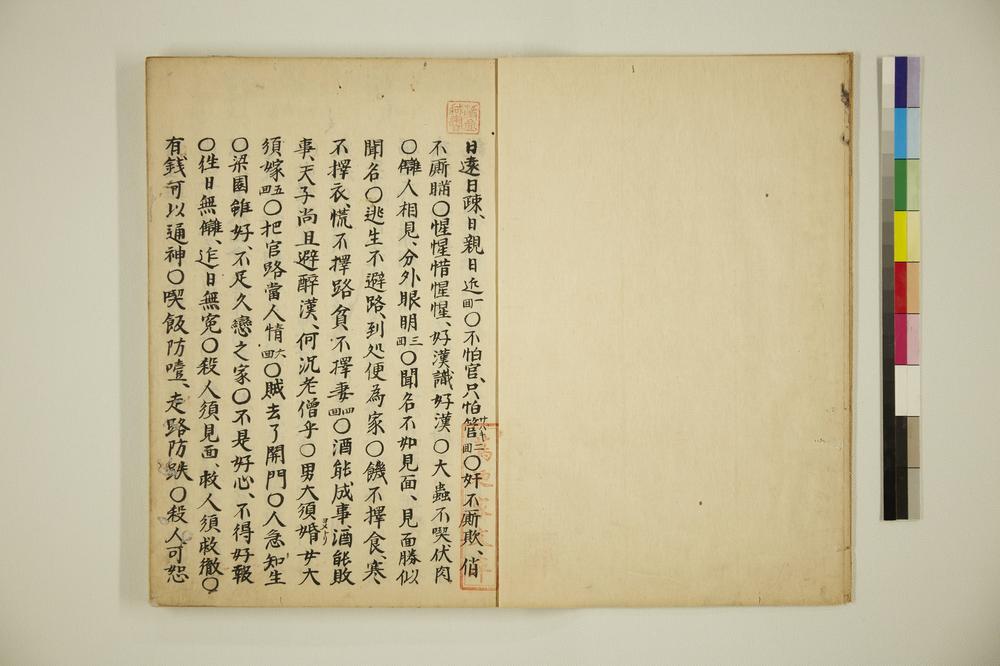 日遠日疎、日親日近一回〇不怕官、只怕管二回〇奸不厮欺、俏
不厮瞞〇惺惺惜惺惺、好漢識好漢〇大蟲不喫伏肉
〇讎人相見、分外眼明三回〇聞名不如見面、見面勝似
聞名〇逃生不避路、到处便為家〇饑不擇食、寒
不擇衣、慌不擇路、貧不擇妻四回〇酒能成事、酒能敗
事、天子尚且避醉漢、何況老僧乎〇男大須婚女大
須嫁五回〇把官路當人情六回〇賊去了關門〇人急知生
〇梁園雖好、不足久戀之家〇不是好心、不得好報
〇徃日無讎、近日無寃〇殺人須見面、救人須救徹〇
有錢可以通神〇喫飯防噎、走路防跌〇殺人可恕